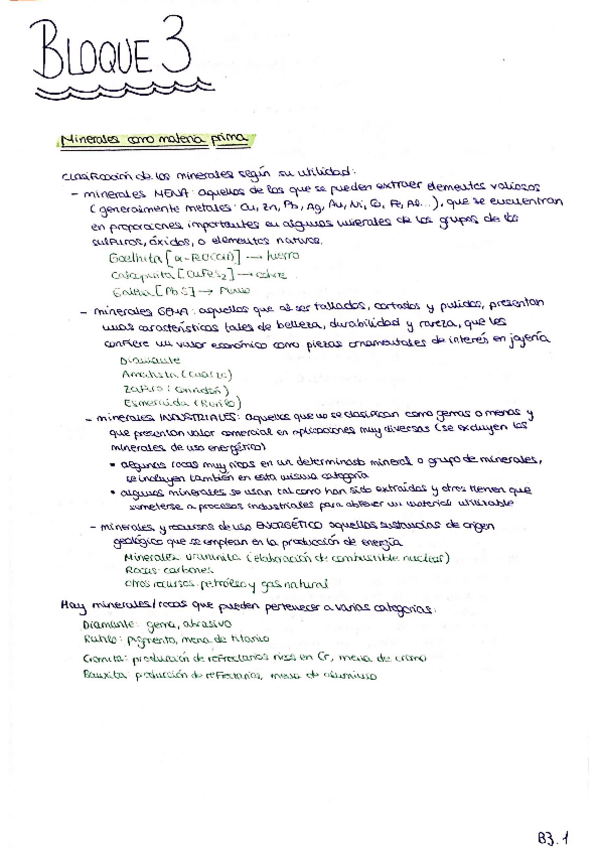 BLOQUE 3
Minerales como materia prima
Clasificación de los minerales según su utilidad:
- minerales MENA: aquellos de los que se pueden extraer elementos valiosos
(generalmente metales: Cu, Zn, Pb, Ag, Au, Ni, Co, Fe, Al...), que se encuentran
en proporciones importantes en algunos minerales de los grupos de los
sulfuros, óxidos, o elementos nativos.
Goethita → hierro
Calcopirita [CuFeS2] → cobre
Galena [PbS] → Plomo
- minerales GEMA: aquellos que al ser tallados, cortados y pulidos, presentan
unas características tales de belleza, durabilidad y rareza, que les
confiere un valor económico como piezas ornamentales de interés en joyería
Diamante
Amatista (cuarzo)
Zafiro (corindón)
Esmeralda (Berilo)
- minerales INDUSTRIALES: aquellos que no se clasifican como gemas o menas y
que presentan valor comercial en aplicaciones muy diversas (se excluyen los
minerales de uso energético)
• algunas rocas muy ricas en un determinado mineral o grupo de minerales,
se incluyen también en esta misma categoría
• algunos minerales se usan tal como han sido extraídos y otros tienen que
someterse a procesos industriales para obtener un material utilizable
- minerales y recursos de uso ENERGÉTICO aquellas sustancias de origen
geológico que se emplean en la producción de energía
Minerales: uraninita (elaboración de combustible nuclear)
Rocas: carbones
Otros recursos: petróleo y gas natural
Hay minerales/rocas que pueden pertenecer a varias categorías:
Diamante: gema, abrasivo
Rutilo: pigmento, mena de titanio
Cromita: producción de refractarios ricos en Cr, mena de cromo
Bauxita: producción de refractarios, mena de aluminio
B3.1